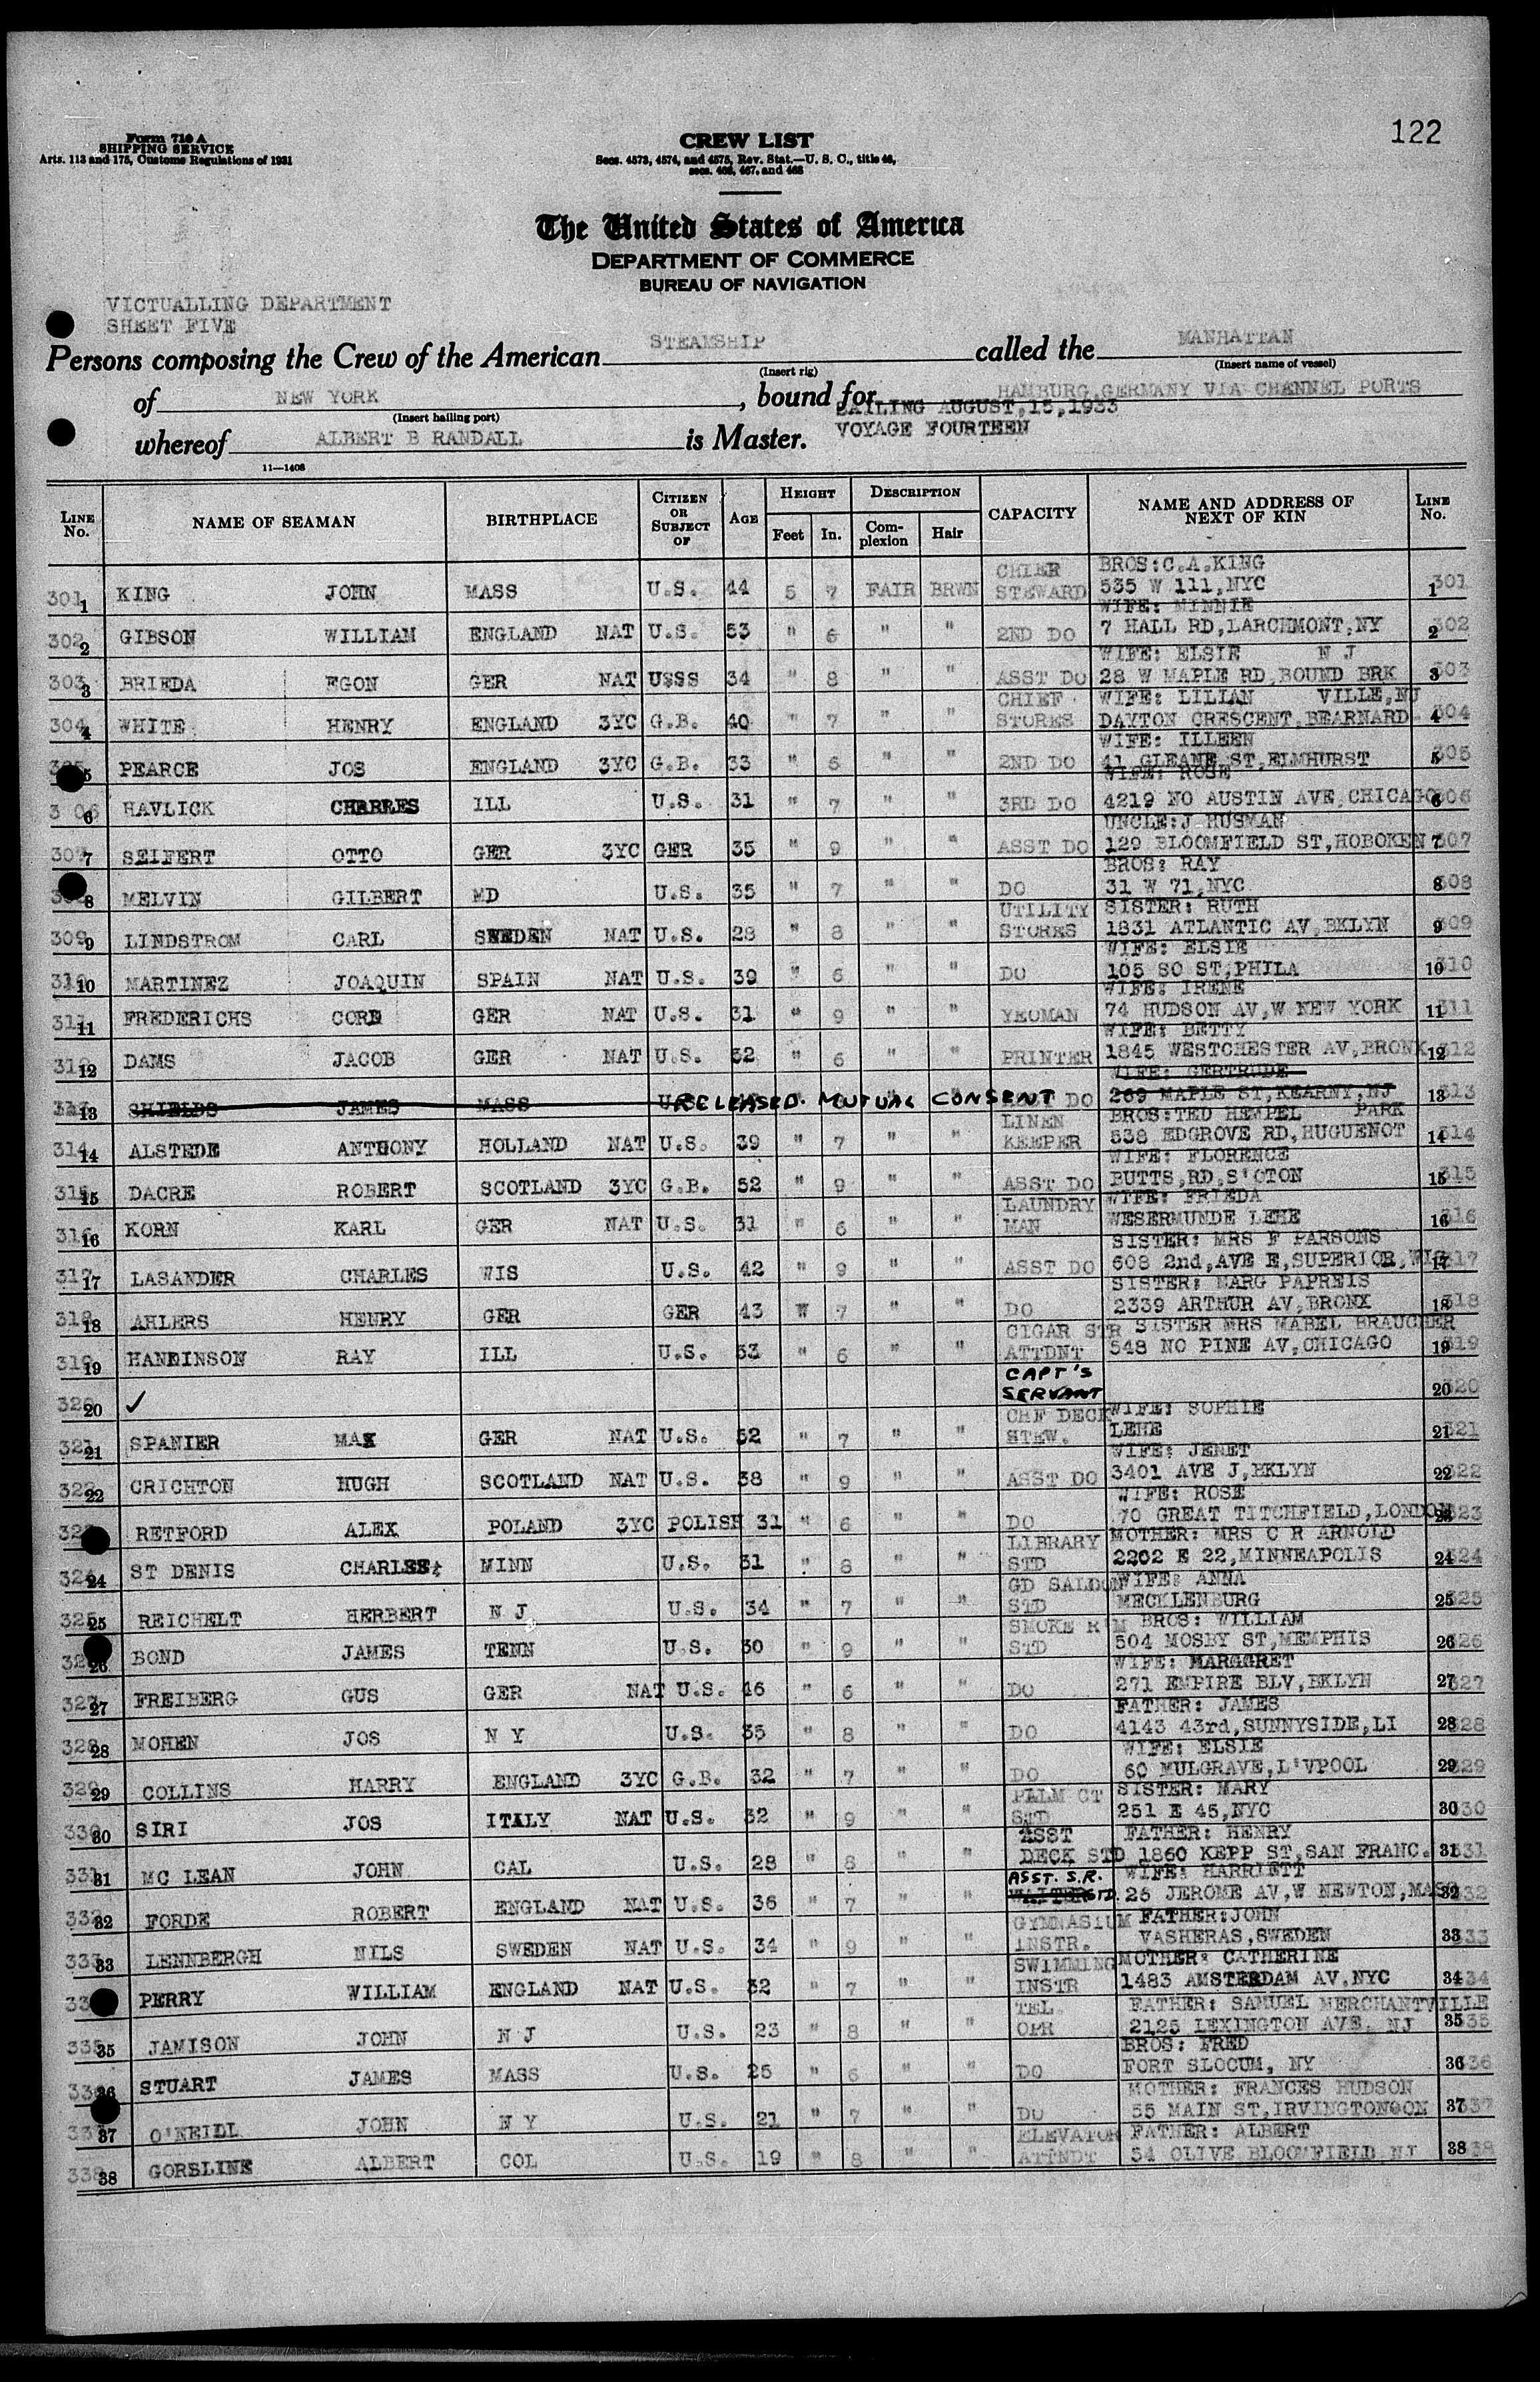 122
Form 710 A
SHIPPING SERVICE
Arts. 113 and 175, Customs Regulations of 1931
CREW LIST
Secs. 4573, 4574, and 4575, Rev. Stat.—U. S. C., title 46,
secs. 466, 467, and 468
The United States of America
DEPARTMENT OF COMMERCE
BUREAU OF NAVIGATION
VICTUALLING DEPARTMENT
SHEET FIVE
Persons composing the Crew of the American STEAMSHIP called the MANHATTAN
(Insert rig) (Insert name of vessel)
of NEW YORK, bound for HAMBURG, GERMANY VIA CHANNEL PORTS
(Insert hailing port) SAILING AUGUST, 15, 1933
whereof ALBERT B RANDALL is Master. VOYAGE FOURTEEN
11—1408
LINE No. NAME OF SEAMAN BIRTHPLACE CITIZEN OR SUBJECT OF AGE HEIGHT Feet In. DESCRIPTION Complexion Hair CAPACITY NAME AND ADDRESS OF NEXT OF KIN LINE No.
301 1 KING JOHN MASS U.S. 44 5 7 FAIR BRWN CHIEF STEWARD BROS: C.A. KING 535 W 111, NYC 1 301
302 2 GIBSON WILLIAM ENGLAND NAT U.S. 53 " 6 " " 2ND DO WIFE: MINNIE 7 HALL RD, LARCHMONT, NY 2 302
303 3 BRIEDA EGON GER NAT USSS 34 " 8 " " ASST DO WIFE: ELSIE N J 28 W MAPLE RD, BOUND BRK 3 303
304 4 WHITE HENRY ENGLAND 3YC G.B. 40 " 7 " " CHIEF STORES WIFE: LILIAN VILLE, NJ DAYTON CRESCENT, BEARNARD 4 304
5 PEARCE JOS ENGLAND 3YC G.B. 33 " 6 " " 2ND DO WIFE: ILLEEN 41 GLEANE ST, ELMHURST 5 305
306 6 HAVLICK CHARRES ILL U.S. 31 " 7 " " 3RD DO WIFE: ROSE 4219 NO AUSTIN AVE, CHICAGO 6 306
307 7 SEIFERT OTTO GER 3YC GER 35 " 9 " " ASST DO UNCLE: J HUSMAN 129 BLOOMFIELD ST, HOBOKEN 7 307
8 MELVIN GILBERT MD U.S. 35 " 7 " " DO BROS: RAY 31 W 71, NYC 8 308
309 9 LINDSTROM CARL SWEDEN NAT U.S. 28 " 8 " " UTILITY STORES SISTER: RUTH 1831 ATLANTIC AV, BKLYN 9 309
310 10 MARTINEZ JOAQUIN SPAIN NAT U.S. 39 " 6 " " DO WIFE: ELSIE 105 SO ST, PHILA 10 310
311 11 FREDERICHS CORD GER NAT U.S. 31 " 9 " " YEOMAN WIFE: IRENE 74 HUDSON AV, W NEW YORK 11 311
312 12 DAMS JACOB GER NAT U.S. 52 " 6 " " PRINTER WIFE: BETTY 1845 WESTCHESTER AV, BRONX 12 312
313 13 SHIELDS JAMES MASS RELEASED. MUTUAL CONSENT DO WIFE: GERTRUDE 269 MAPLE ST, KEARNY, NJ 13 313
314 14 ALSTEDE ANTHONY HOLLAND NAT U.S. 39 " 7 " " LINEN KEEPER BROS: TED HEMPEL PARK 538 EDGROVE RD, HUGUENOT 14 314
315 15 DACRE ROBERT SCOTLAND 3YC G.B. 52 " 9 " " ASST DO WIFE: FLORENCE BUTTS, RD, S'OTON 15 315
316 16 KORN KARL GER NAT U.S. 31 " 6 " " LAUNDRY MAN WIFE: FRIEDA WESERMUNDE LEHE 16 316
317 17 LASANDER CHARLES WIS U.S. 42 " 9 " " ASST DO SISTER: MRS F PARSONS 608 2nd, AVE E, SUPERIOR, WIS 17 317
318 18 AHLERS HENRY GER GER 43 W 7 " " DO SISTER: MARG PAPREIS 2339 ARTHUR AV, BRONX 18 318
319 19 HANKINSON RAY ILL U.S. 53 " 6 " " CIGAR STR ATTDNT SISTER MRS MABEL BRAUCHER 548 NO PINE AV, CHICAGO 19 319
320 20 ✓ CAPT'S SERVANT 20 320
321 21 SPANIER MAX GER NAT U.S. 52 " 7 " " CHF DECK STEW. WIFE: SOPHIE LEHE 21 321
322 22 CRICHTON HUGH SCOTLAND NAT U.S. 38 " 9 " " ASST DO WIFE: JENET 3401 AVE J, BKLYN 22 322
RETFORD ALEX POLAND 3YC POLISH 31 " 6 " " DO WIFE: ROSE 70 GREAT TITCHFIELD, LONDON 23 323
324 24 ST DENIS CHARLES MINN U.S. 31 " 8 " " LIBRARY STD MOTHER: MRS C R ARNOLD 2202 E 22, MINNEAPOLIS 24 324
325 25 REICHELT HERBERT N J U.S. 34 " 7 " " GD SALOON STD WIFE: ANNA MECKLENBURG 25 325
26 BOND JAMES TENN U.S. 30 " 9 " " SMOKE R'M STD BROS: WILLIAM 504 MOSBY ST, MEMPHIS 26 326
327 27 FREIBERG GUS GER NAT U.S. 46 " 6 " " DO WIFE: MARGGRET 271 EMPIRE BLV, BKLYN 27 327
328 28 MOHEN JOS N Y U.S. 35 " 8 " " DO FATHER: JAMES 4143 43rd, SUNNYSIDE, LI 28 328
329 29 COLLINS HARRY ENGLAND 3YC G.B. 32 " 7 " " DO WIFE: ELSIE 60 MULGRAVE, L'VPOOL 29 329
330 30 SIRI JOS ITALY NAT U.S. 32 " 9 " " PALM CT STD SISTER: MARY 251 E 45, NYC 30 330
331 31 MC LEAN JOHN CAL U.S. 28 " 8 " " ASST DECK STD FATHER: HENRY 1860 KEPP ST, SAN FRANC. 31 331
332 32 FORDE ROBERT ENGLAND NAT U.S. 36 " 7 " " ASST. S.R. WAITER STD. WIFE: HARRIETT 26 JEROME AV, W NEWTON, MASS 32 332
333 33 LENNBERGH NILS SWEDEN NAT U.S. 34 " 9 " " GYMNASIUM INSTR. FATHER: JOHN VASHERAS, SWEDEN 33 333
PERRY WILLIAM ENGLAND NAT U.S. 32 " 7 " " SWIMMING INSTR MOTHER: CATHERINE 1483 AMSTERDAM AV, NYC 34 334
335 35 JAMISON JOHN N J U.S. 23 " 8 " " TEL. OPR FATHER: SAMUEL MERCHANTVILLE 2125 LEXINGTON AVE, NJ 35 335
336 36 STUART JAMES MASS U.S. 25 " 6 " " DO BROS: FRED FORT SLOCUM, NY 36 336
337 37 O'NEILL JOHN N Y U.S. 21 " 7 " " DO MOTHER: FRANCES HUDSON 55 MAIN ST, IRVINGTONOON 37 337
338 38 GORSLINE ALBERT COL U.S. 19 " 8 " " ELEVATOR ATTNDT FATHER: ALBERT 54 OLIVE BLOOMFIELD NJ 38 338